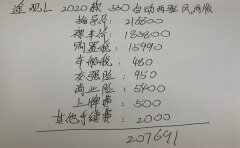 途观L 2020款 330自动两驱风尚版
指导价: 216800
裸车价: 183800
购置税: 15990
车船税: 480
交强险: 950
商业险: 5400
上牌费: 500
其他手续费: 2000
207691